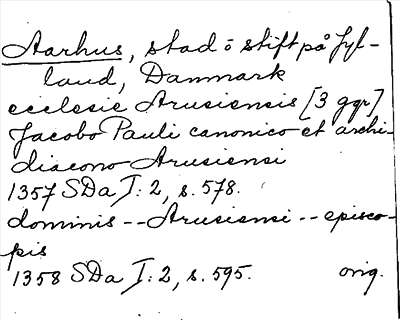 Aarhus, stad o stift på Jyl-
land, Danmark
ecclesie Arusiensis [3 ggr]
Jacobo Pauli canonico et archi-
diacono Arusiensi
1357 SDa I: 2, s. 578.
dominis -- Arusiensi -- episco-
pis
1358 SDa I: 2, s. 595. orig.